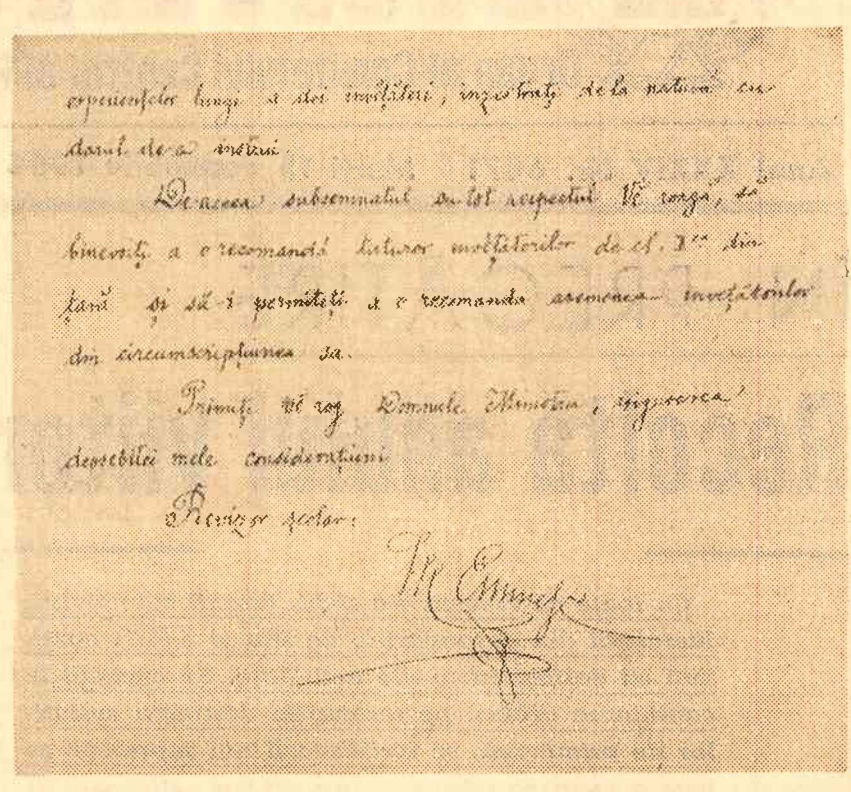 experiențelor lungi a doi învĕțători, înzestrați de la natură cu
darul de a instrui.
De aceea subsemnatul cu tot respectul Vĕ roagă, să
binevoiți a o recomandá tuturor învĕțătorilor de cl. I-ea din
țară și să-i permiteți a o recomanda asemenea învețătorilor
din circumscripțiunea sa.
Primiți vĕ rog Domnule Ministru, asigurarea
deosebitei mele considerațiuni
Revizor școlar:
M Eminescu